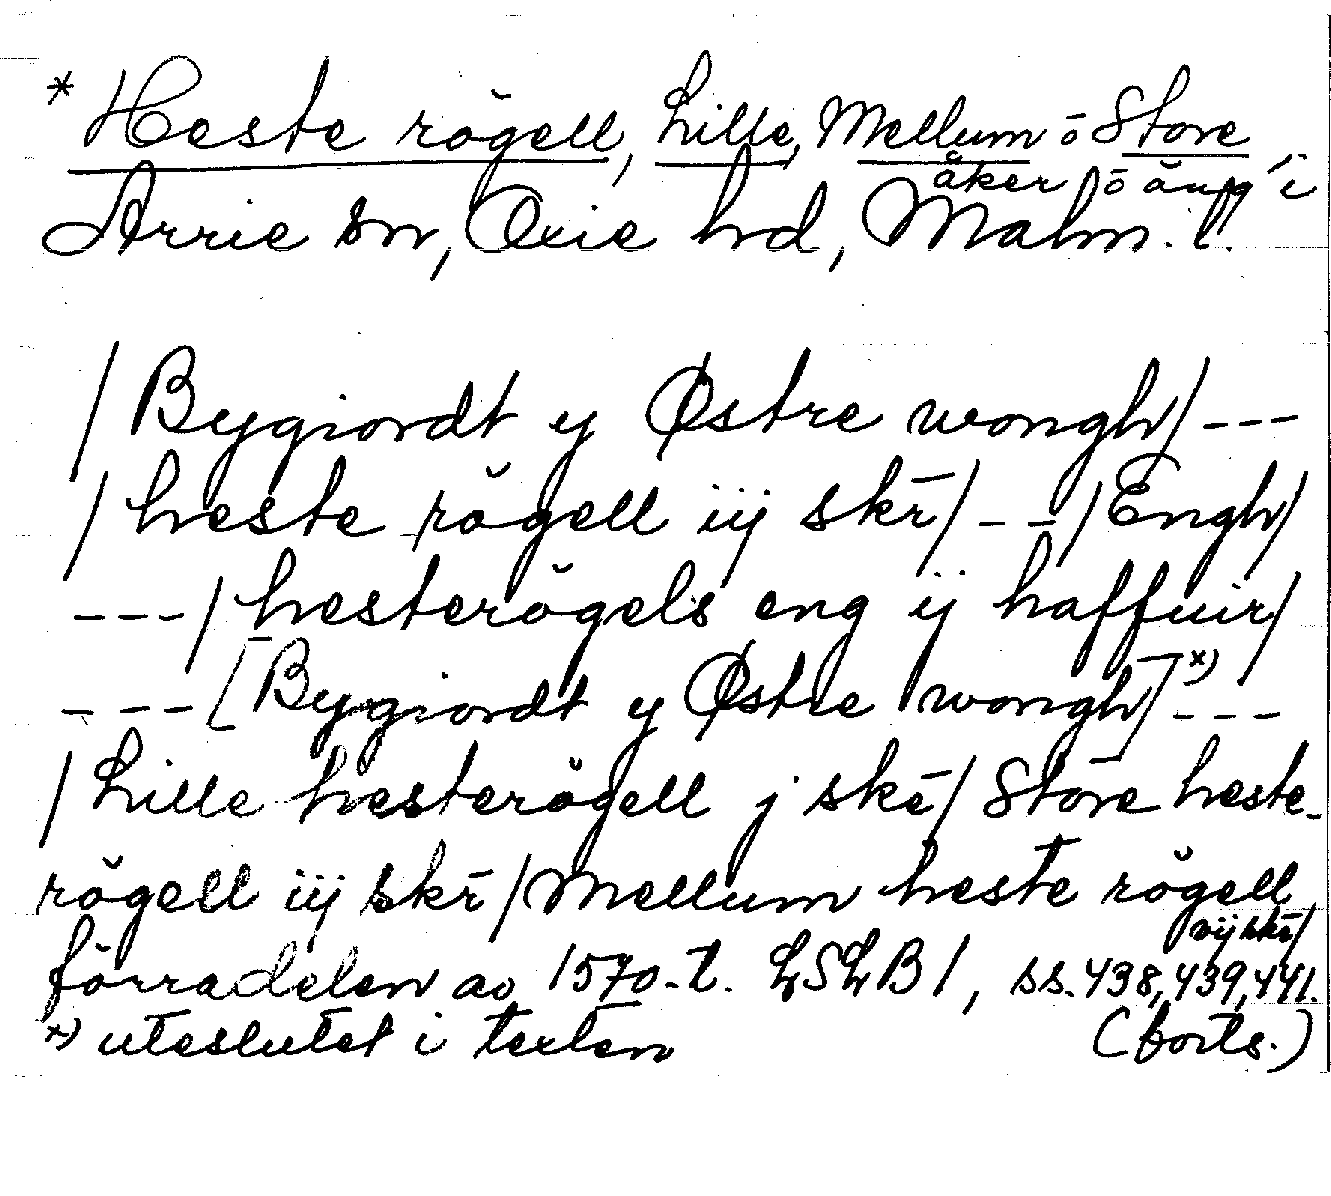 * Heste rögell, Lille, Mellum ō Store
åker ō äng i
Arrie sn, Oxie hd, Malm. l.
/ Bygiordt y Østre wongh/ ---
/ heste rögell iij skr̄/ --/ Engh/
---/ hesterögels eng ij haffuir/
--- [Bygiordt y Østre wongh] x) ---
/ Lille hesterögell j skr̄/ Store heste-
rögell iij skr̄ / Mellum heste rögell
vij skr̄/
förradelen av 1570-t. LSLB 1, ss. 438, 439, 441.
x) uteslutet i texten (forts.)